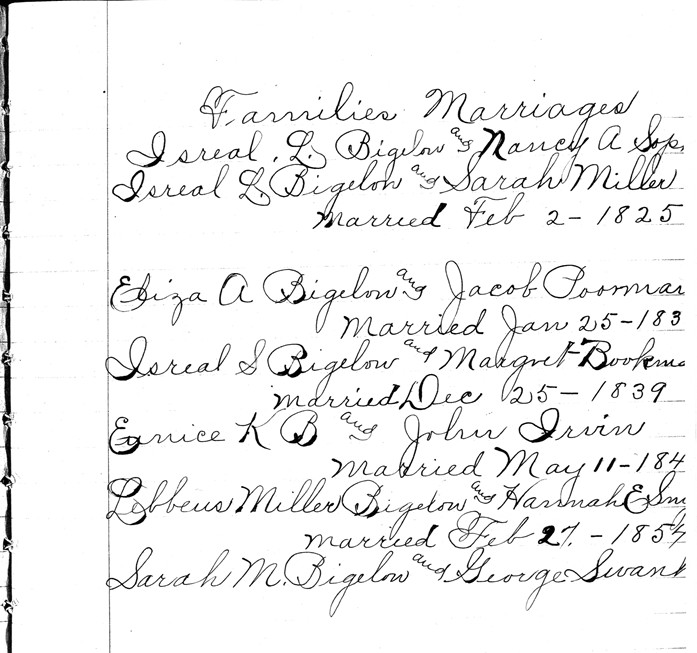 Families Marriages
Isreal. L. Bigelow and Nancy A Sop
Isreal L. Bigelow and Sarah Miller
married Feb 2 - 1825
Eliza A Bigelow and Jacob Poorman
Married Jan 25 - 183
Isreal S Bigelow and Margret Bookma
married Dec 25 - 1839
Eunice K B and John Irvin
Married May 11 - 184
Lebbeus Miller Bigelow and Hannah E Sny
married Feb 27. - 1854
Sarah M. Bigelow and George Swank